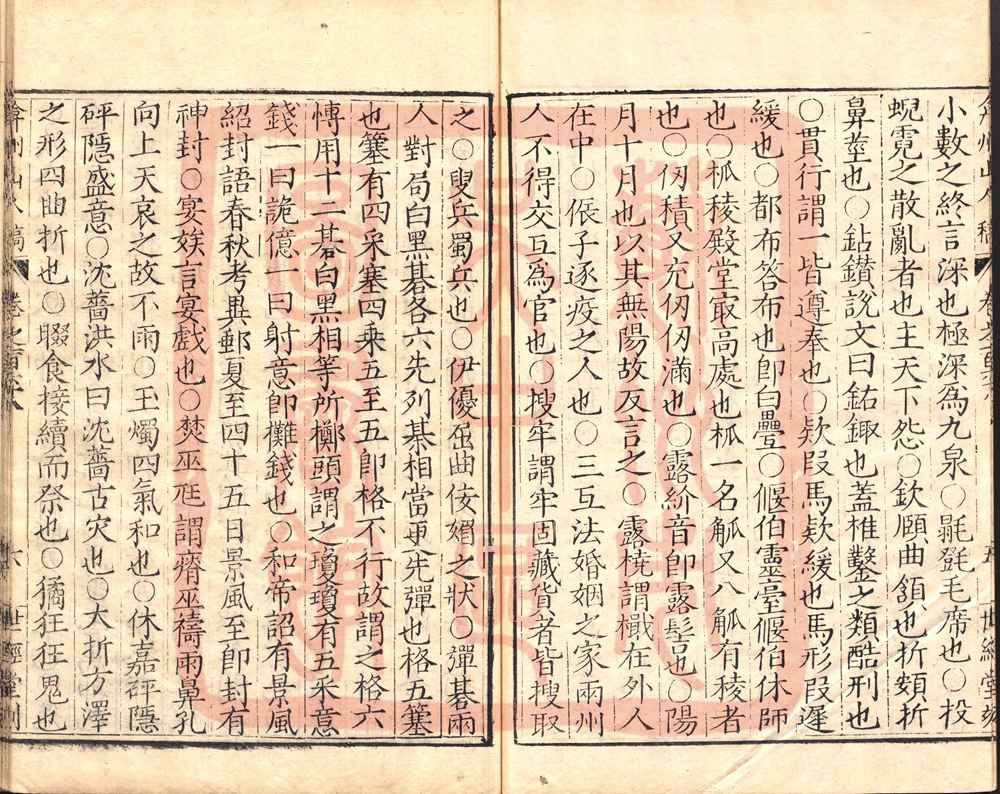 小數之終言深也極深爲九泉○毾㲪毛席也○投
蜺霓之散亂者也主天下怨○欽頥曲頷也折頞折
鼻莖也○鉆鑽說文曰鉆鍤也蓋椎鑿之類酷刑也
○貫行謂一皆遵奉也○欵段馬欵緩也馬形段遲
緩也○都布答布也卽白疊○偃伯靈臺偃伯休師
也○柧稜殿堂最高處也柧一名觚又八觚有稜者
也○仞積又充仞仞滿也○露紒音卽露髻也○陽
月十月也以其無陽故反言之○露橈謂檝在外人
在中○侲子逐疫之人也○三互法婚姻之家兩州
人不得交互爲官也○搜牢謂牢固藏貨者皆搜取
之○叟兵蜀兵也○伊優屈曲佞媚之狀○彈棊兩
人對局白黑棊各六先列棊相當更先彈也格五簺
也簺有四采塞四乘五至五卽格不行故謂之格六
愽用十二棊白黑相等所擲頭謂之瓊瓊有五采意
錢一曰詭億一曰射意卽攤錢也○和帝詔有景風
紹封語春秋考異郵夏至四十五日景風至卽封有
神封○宴娭言宴戲也○焚巫尪謂瘠巫禱雨鼻孔
向上天哀之故不雨○玉燭四氣和也○休嘉砰隱
砰隱盛意○沈薔洪水曰沈薔古灾也○大折方澤
之形四曲折也○腏食接續而祭也○獝狂狂鬼也
弇州山人稿 卷之 六 世經堂刻